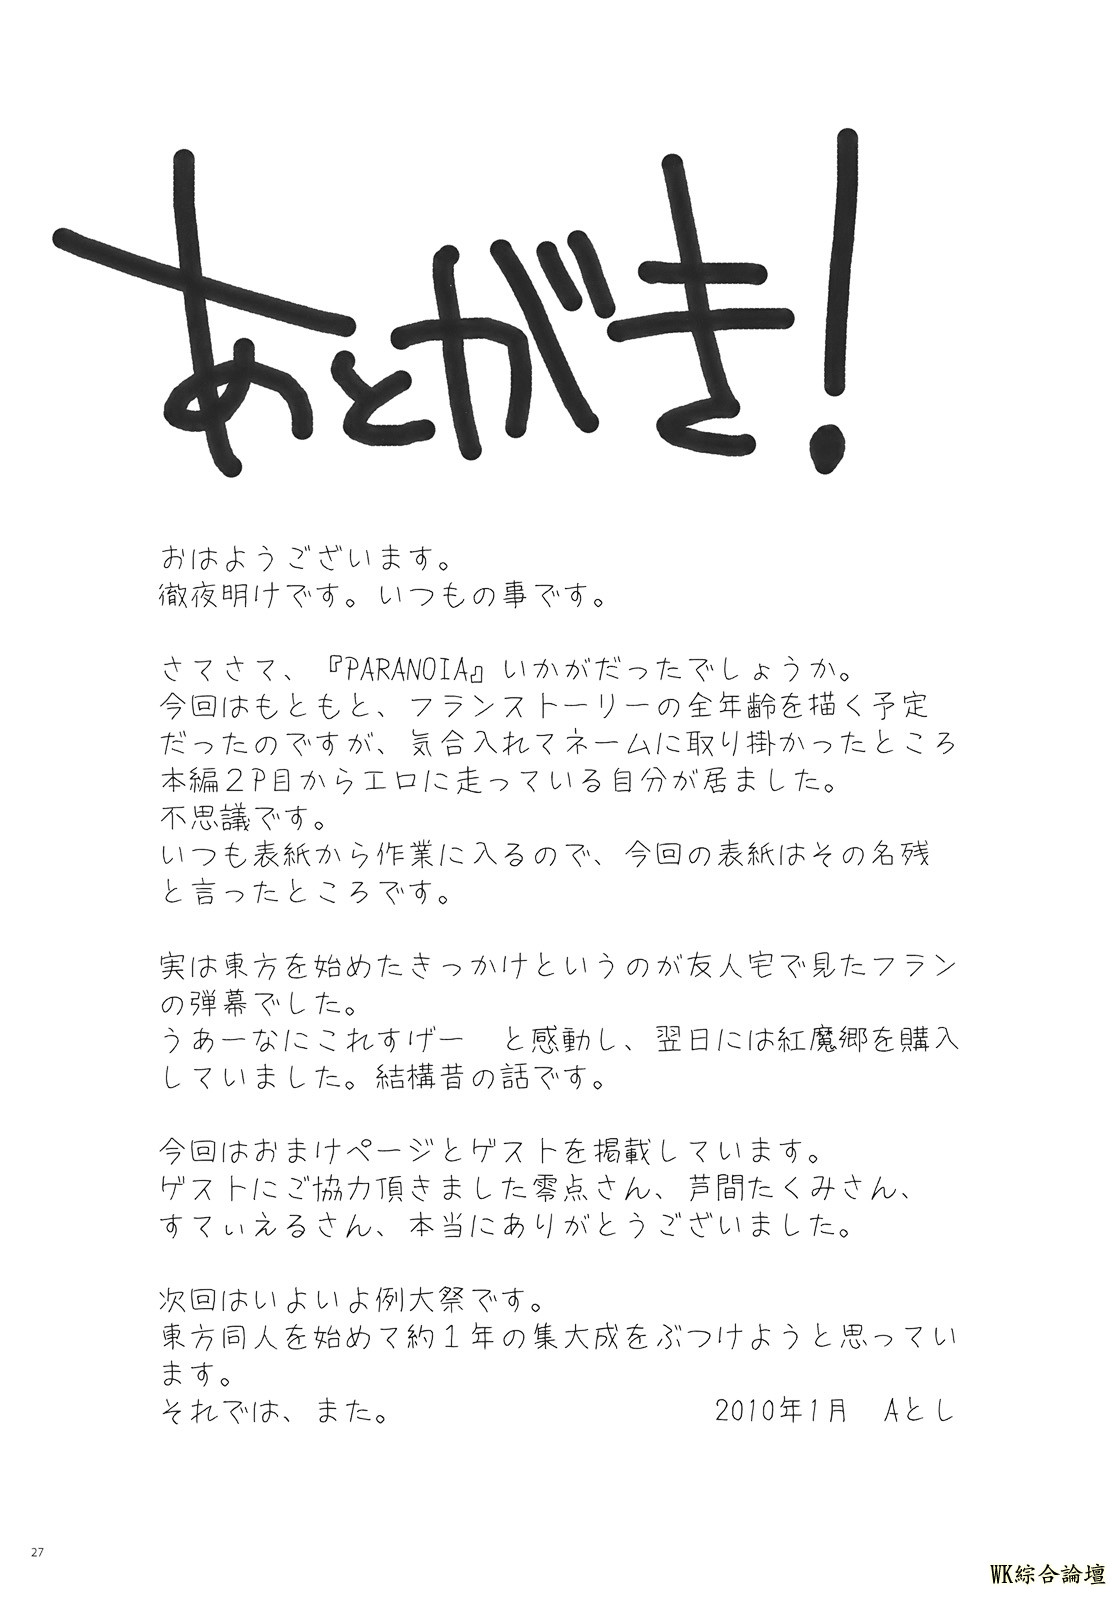 あとがき!
おはようございます。
徹夜明けです。いつもの事です。
さてさて、『PARANOIA』いかがだったでしょうか。
今回はもともと、フランストーリーの全年齢を描く予定
だったのですが、気合入れてネームに取り掛かったところ
本編2P目からエロに走っている自分が居ました。
不思議です。
いつも表紙から作業に入るので、今回の表紙はその名残
と言ったところです。
実は東方を始めたきっかけというのが友人宅で見たフラン
の弾幕でした。
うあーなにこれすげー　と感動し、翌日には紅魔郷を購入
していました。結構昔の話です。
今回はおまけページとゲストを掲載しています。
ゲストにご協力頂きました零点さん、芦間たくみさん、
すてぃえるさん、本当にありがとうございました。
次回はいよいよ例大祭です。
東方同人を始めて約1年の集大成をぶつけようと思ってい
ます。
それでは、また。　2010年1月　Aとし
27
WK綜合論壇